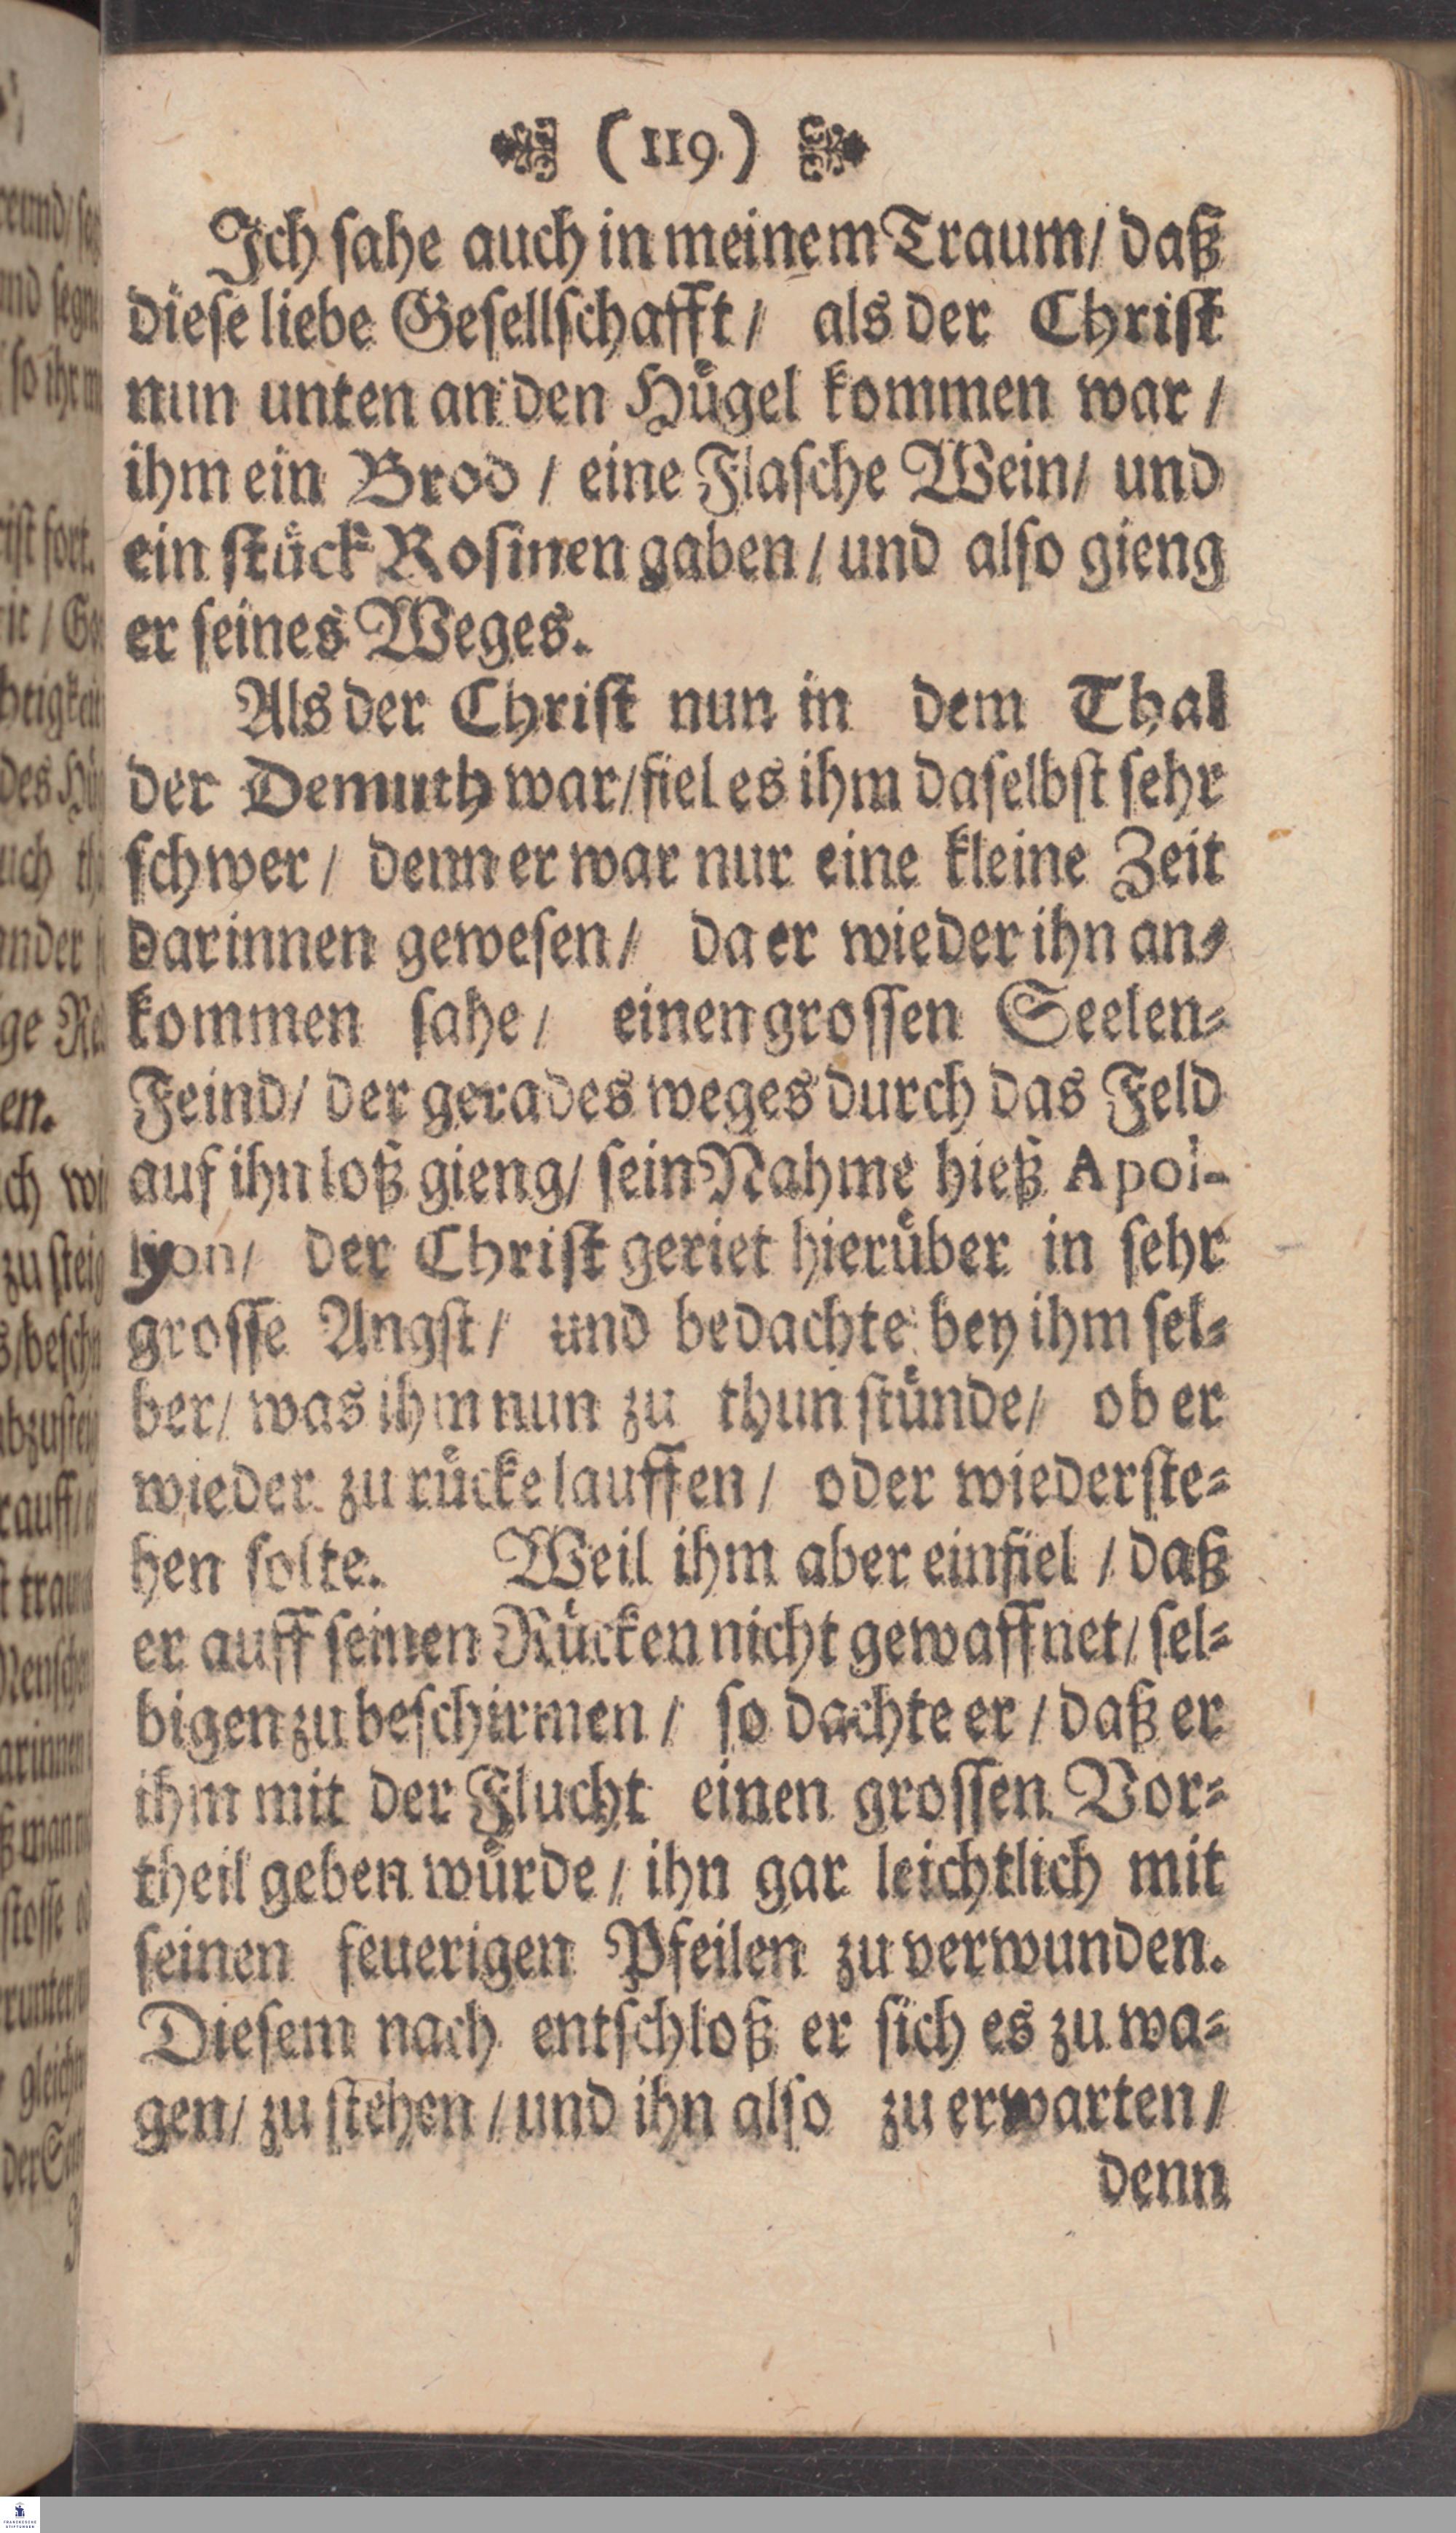 (119.)
Ich sahe auch in meinem Traum/ daß
diese liebe Gesellschafft/ als der Christ
nun unten an den Hügel kommen war /
ihm ein Brod / eine Flasche Wein/ und
ein stück Rosinen gaben / und also gieng
er seines Weges.
Als der Christ nun in dem Thal
der Demuth war/fiel es ihm daselbst sehr
schwer/ denn er war nur eine kleine Zeit
darinnen gewesen/ da er wieder ihn an-
kommen sahe/ einen grossen Seelen-
Feind/ der gerades weges durch das Feld
auf ihn loß gieng/ sein Nahme hieß Apol-
lyon/ der Christ geriet hierüber in sehr
grosse Angst/ und bedachte bey ihm sel-
ber/ was ihm nun zu thun stünde/ ob er
wieder zu rücke lauffen/ oder wiederste-
hen solte. Weil ihm aber einfiel / daß
er auff seinen Rücken nicht gewaffnet/ sel-
bigen zu beschirmen / so dachte er / daß er
ihm mit der Flucht einen grossen Vor-
theil geben würde/ ihn gar leichtlich mit
seinen feuerigen Pfeilen zu verwunden.
Diesem nach entschloß er sich es zu wa-
gen/ zu stehen / und ihn also zu erwarten/
denn